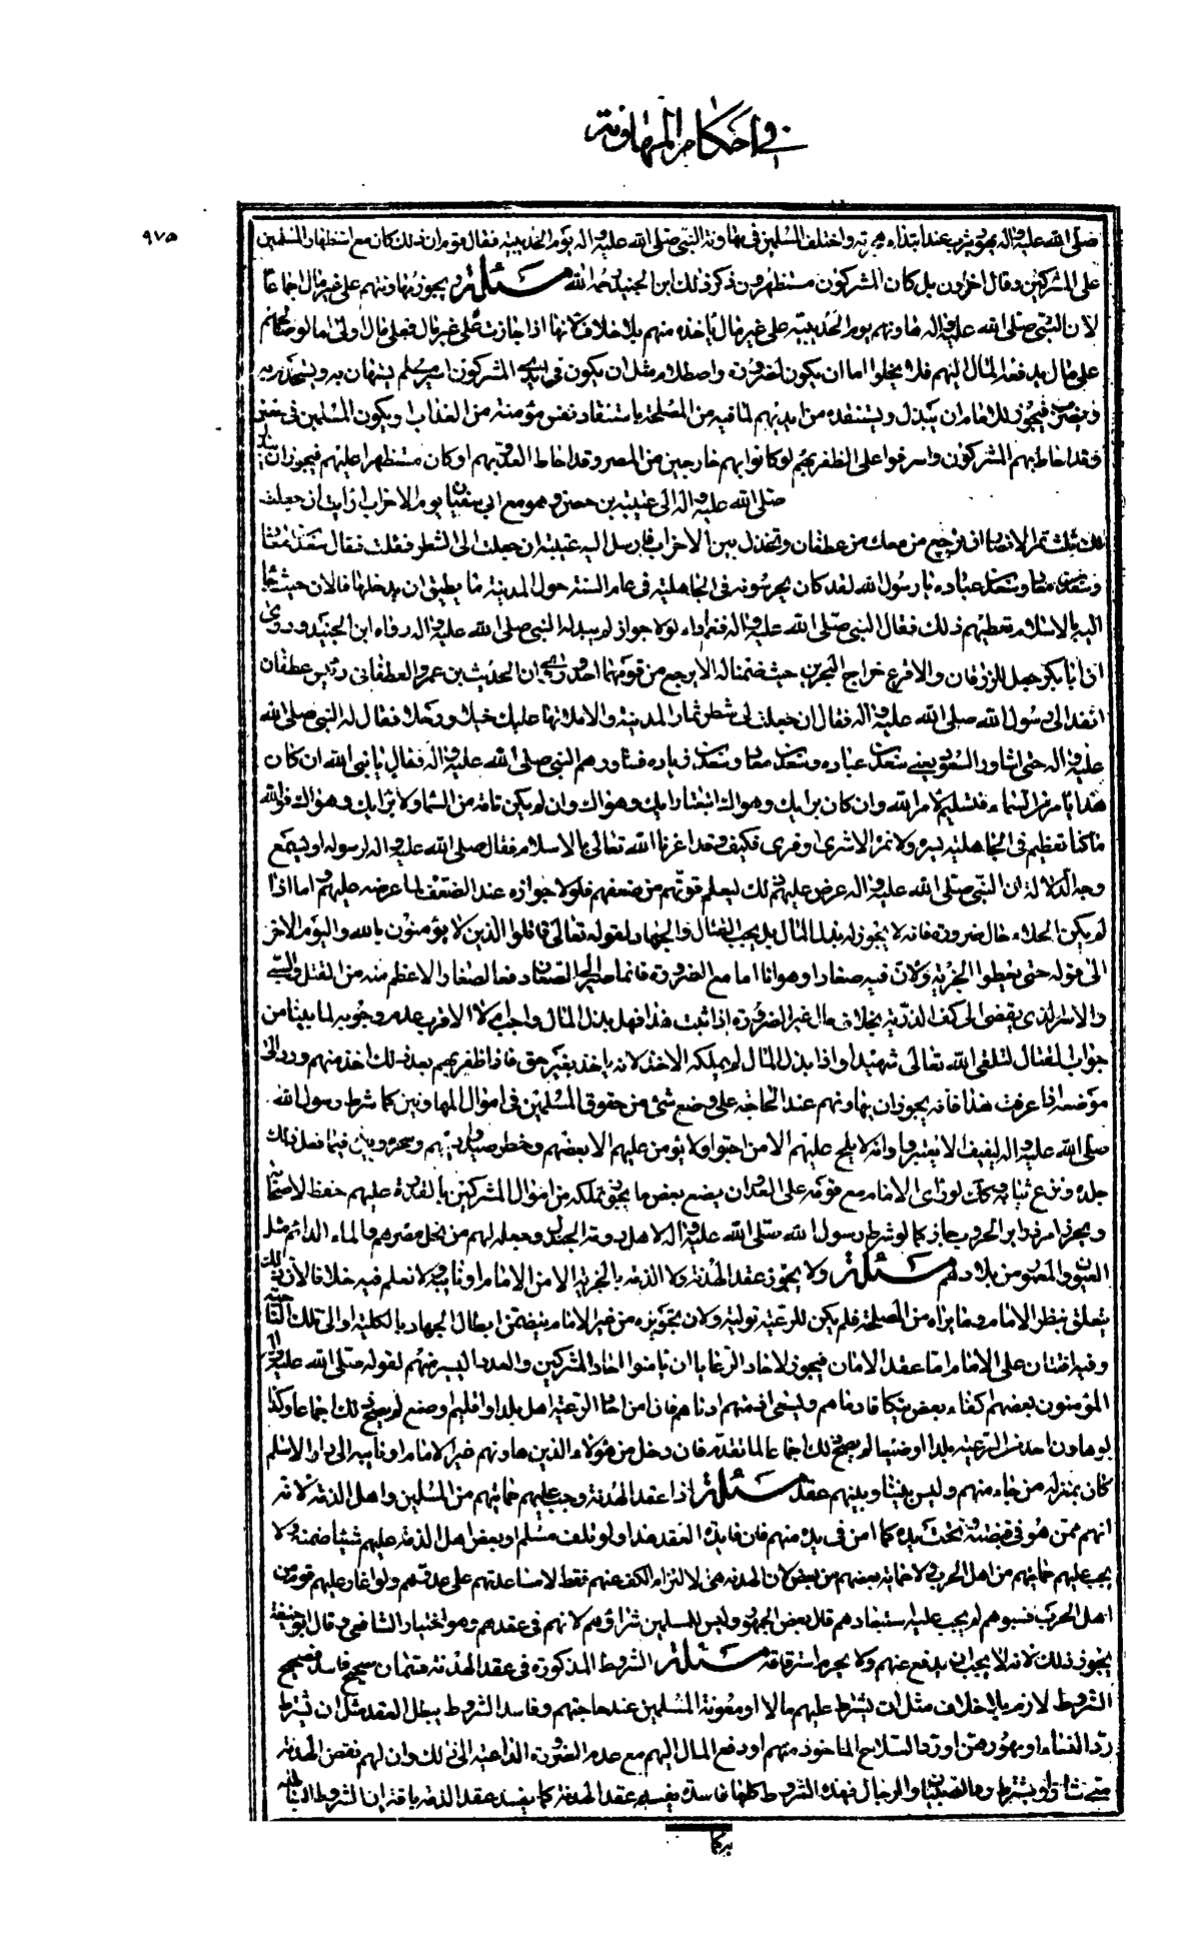 في احكام المهادنة
٩٧٥
صلى الله عليه واله يهود يثرب عند ابتداء هجرته واختلف المسلمين في مهادنة النبي صلى الله عليه واله يوم الحديبية فقال قوم ان ذلك كان مع استظهار المسلمين
على المشركين وقال اخرون بل كان المشركون مستظهرون ذكر ذلك ابن الجنيد رحمه الله مسئلة ويجوز مهادنتهم على غير مال اجماعا
لان النبي صلى الله عليه واله هادنهم يوم الحديبية على غير مال ياخذه منهم بلا خلاف لانها اذا جازت على غير مال فعلى مال اولى اما لو صالحهم
على مال يدفع المال اليهم فلا يخلوا اما ان يكون لضرورة واضطلام مثل ان يكون في ايدي المشركون اسير مسلم يستهان به ويستخدم
ويضرب فيجوز للامام ان يبذل ويستنقذه من ايديهم لما فيه من المصلحة باستنقاذ نفس مؤمنة من العذاب او يكون المسلمين في حصن
وقد احاط بهم المشركون واسرفوا على الظفر بهم او كانوا بهم خارجين من المصر وقد احاط العدو بهم او كان مستظهرا عليهم فيجوز ان
صلى الله عليه واله الى عيينة بن حصن وهو مع ابي سفيان يوم الاحزاب ارايت ان جعلت
لك ثلث تمر الانصار اترجع بمن معك من غطفان وتخذل بين الاحزاب فارسل اليه عيينة ان جعلت الى الشطر فعلت فقال سعد بن معاذ
وسعد بن عباده يا رسول الله لقد كان يجر سرته في الجاهلية في عام السنة حول المدينة ما يطيق ان يدخلها فالان حيث جاء
الله بالاسلام نعطيهم ذلك فقال النبي صلى الله عليه واله فنعم اذا ولو لا جوازه لم يبذله النبي صلى الله عليه واله رواه ابن الجنيد وروى
ان ابا بكر جعل للزبرقان والاقرع خراج البحرين حيث ضمنا له الا يرجع من قومهما احد وروي ان الحديث بن عمرو الغطفاني رئيس غطفان
انفذ الى رسول الله صلى الله عليه واله فقال ان جعلت لي شطر ثمار المدينة والا ملاتها عليك خيلا ورجلا فقال له النبي صلى الله
عليه واله حتى اشاور السعود يعني سعد بن عباده وسعد بن معاذ وسعد بن زراره فشاورهم النبي صلى الله عليه واله فقال يا نبي الله ان كان
هذا بامر من السماء فتسليم لامر الله وان كان برايك وهواك اتبعنا رايك وهواك وان لم يكن بامر من السماء ولا برايك وهواك فوالله
ما كنا نعطيهم في الجاهلية بسرة ولا تمرة الا شرى او قرى فكيف وقد اعزنا الله تعالى بالاسلام فقال صلى الله عليه واله لرسوله اوتسمع
وجه الدلالة ان النبي صلى الله عليه واله عرض عليهم ذلك ليعلم قوتهم من ضعفهم فلولا جوازه عند الضعف لما عرضه عليهم واما اذا
لم يكن الحال حال ضرورة فانه لا يجوز له بذل المال بل يجب القتال والجهاد لقوله تعالى قاتلوا الذين لا يؤمنون بالله واليوم الاخر
الى قوله حتى يعطوا الجزية ولان فيه صغارا وهوانا اما مع الضرورة فانما صير الى الصغار دفعا لصغار الاعظم منه من القتل والسبي
والاسر الذي يفضى الى كفر الذرية بخلاف حال غير الضرورة اذا ثبت هذا فهل بذل المال واجب ام لا الاقرب عدم وجوبه لما بينا من
جواز القتال لتلقي الله تعالى شهيدا واذا بذل المال لم يملكه الاخذ لانه ياخذ بغير حق فاذا ظفر بهم بعد ذلك اخذ منهم ورد الى
موضعه اذا عرفت هذا فانه يجوز ان يهادنهم عند الحاجة على وضع شئ من حقوق المسلمين في اموال المهادنين كما شرط رسول الله
صلى الله عليه واله لثقيف الا يعشروا وانه لا يلج عليهم الا من احبوا ولا يؤمن عليهم الا بعضهم وحظر صيد واديهم وشجره وبين فيما فعل ذلك
جلده ونزع ثيابه وكذلك لو راى الامام مع قوته على العدو ان يضع بعض ما يجوز تملكه من اموال المشركين بالقدرة عليهم حفظا لاصحابه
وتحرزا من دوائر الحروب جاز كما لو شرط رسول الله صلى الله عليه واله لاهل دومة الجندل وجعله لهم من نخل مصرهم والماء الدائم مثل
العيون والمعمور من بلادهم مسئلة ولا يجوز عقد الهدنة ولا الذمة بالجزية الا من الامام او نايبه لا نعلم فيه خلافا لان ذلك
يتعلق بنظر الامام وما يراه من المصلحة فلم يكن للرعية توليته ولان تجويزه من غير الامام يتضمن ابطال الجهاد بالكلية او الى تلك الناحية
وفيه افتئات على الامام اما عقد الامان فيجوز لاحاد الرعايا ان يامنوا احاد المشركين والعدد اليسير منهم لقوله صلى الله عليه واله
المؤمنون بعضهم اكفاء بعض يتكافا دماهم ويسعى بذمتهم ادناهم فان امن احاد الرعية اهل بلد او اقليم وصقع لم يصح ذلك اجماعا وكذا
لو هادن احد من الرعية بلدا او صقعا لم يصح ذلك اجماعا لما تقدم فان دخل من هؤلاء الذين هادنهم غير الامام او نايبه الى دار الاسلم
كان بمنزلة من جاء منهم وليس بيننا وبينهم عقد مسئلة اذا عقد الهدنة وجب عليهم حمايتهم من المسلمين واهل الذمة لانه
امنهم ممن هو في قبضته وتحت يده كما امن في يده منهم فان فايدة العقد هذا ولو تلف مسلم او بعض اهل الذمة عليهم شيئا ضمنه ولا
يجب عليهم حمايتهم من اهل الحرب ولا حماية بعضهم من بعض لان الهدنة هي لالتزام الكف عنهم فقط لا مساعدتهم على عدوهم ولو اغار عليهم قوم من
اهل الحرب فسبوهم لم يجب عليه استنقاذهم قال بعض الجمهور وليس للمسلمين شراؤهم لانهم في عقدهم وهو اختيار الشافعي وقال ابو حنيفة
يجوز ذلك لانه لا يجب ان يدفع عنهم ولا يحرم استرقاقه مسئلة الشروط المذكورة في عقد الهدنة قسمان صحيح فاسد فصحيح
الشروط لازم بلا خلاف مثل ان يشترط عليهم مالا او معونة المسلمين عند حاجتهم وفاسد الشروط يبطل العقد مثل ان يشترط
رد النساء او مهورهن او رد السلاح الماخوذ منهم او دفع المال اليهم مع عدم الضرورة الداعية الى ذلك وان لهم نقض الهدنة
متى شاؤا او يشترط رد الصبيان او الرجال فهذه الشروط كلها فاسدة يفسد عقد الهدنة كما يفسد عقد الذمة باقتران الشروط الباطلة